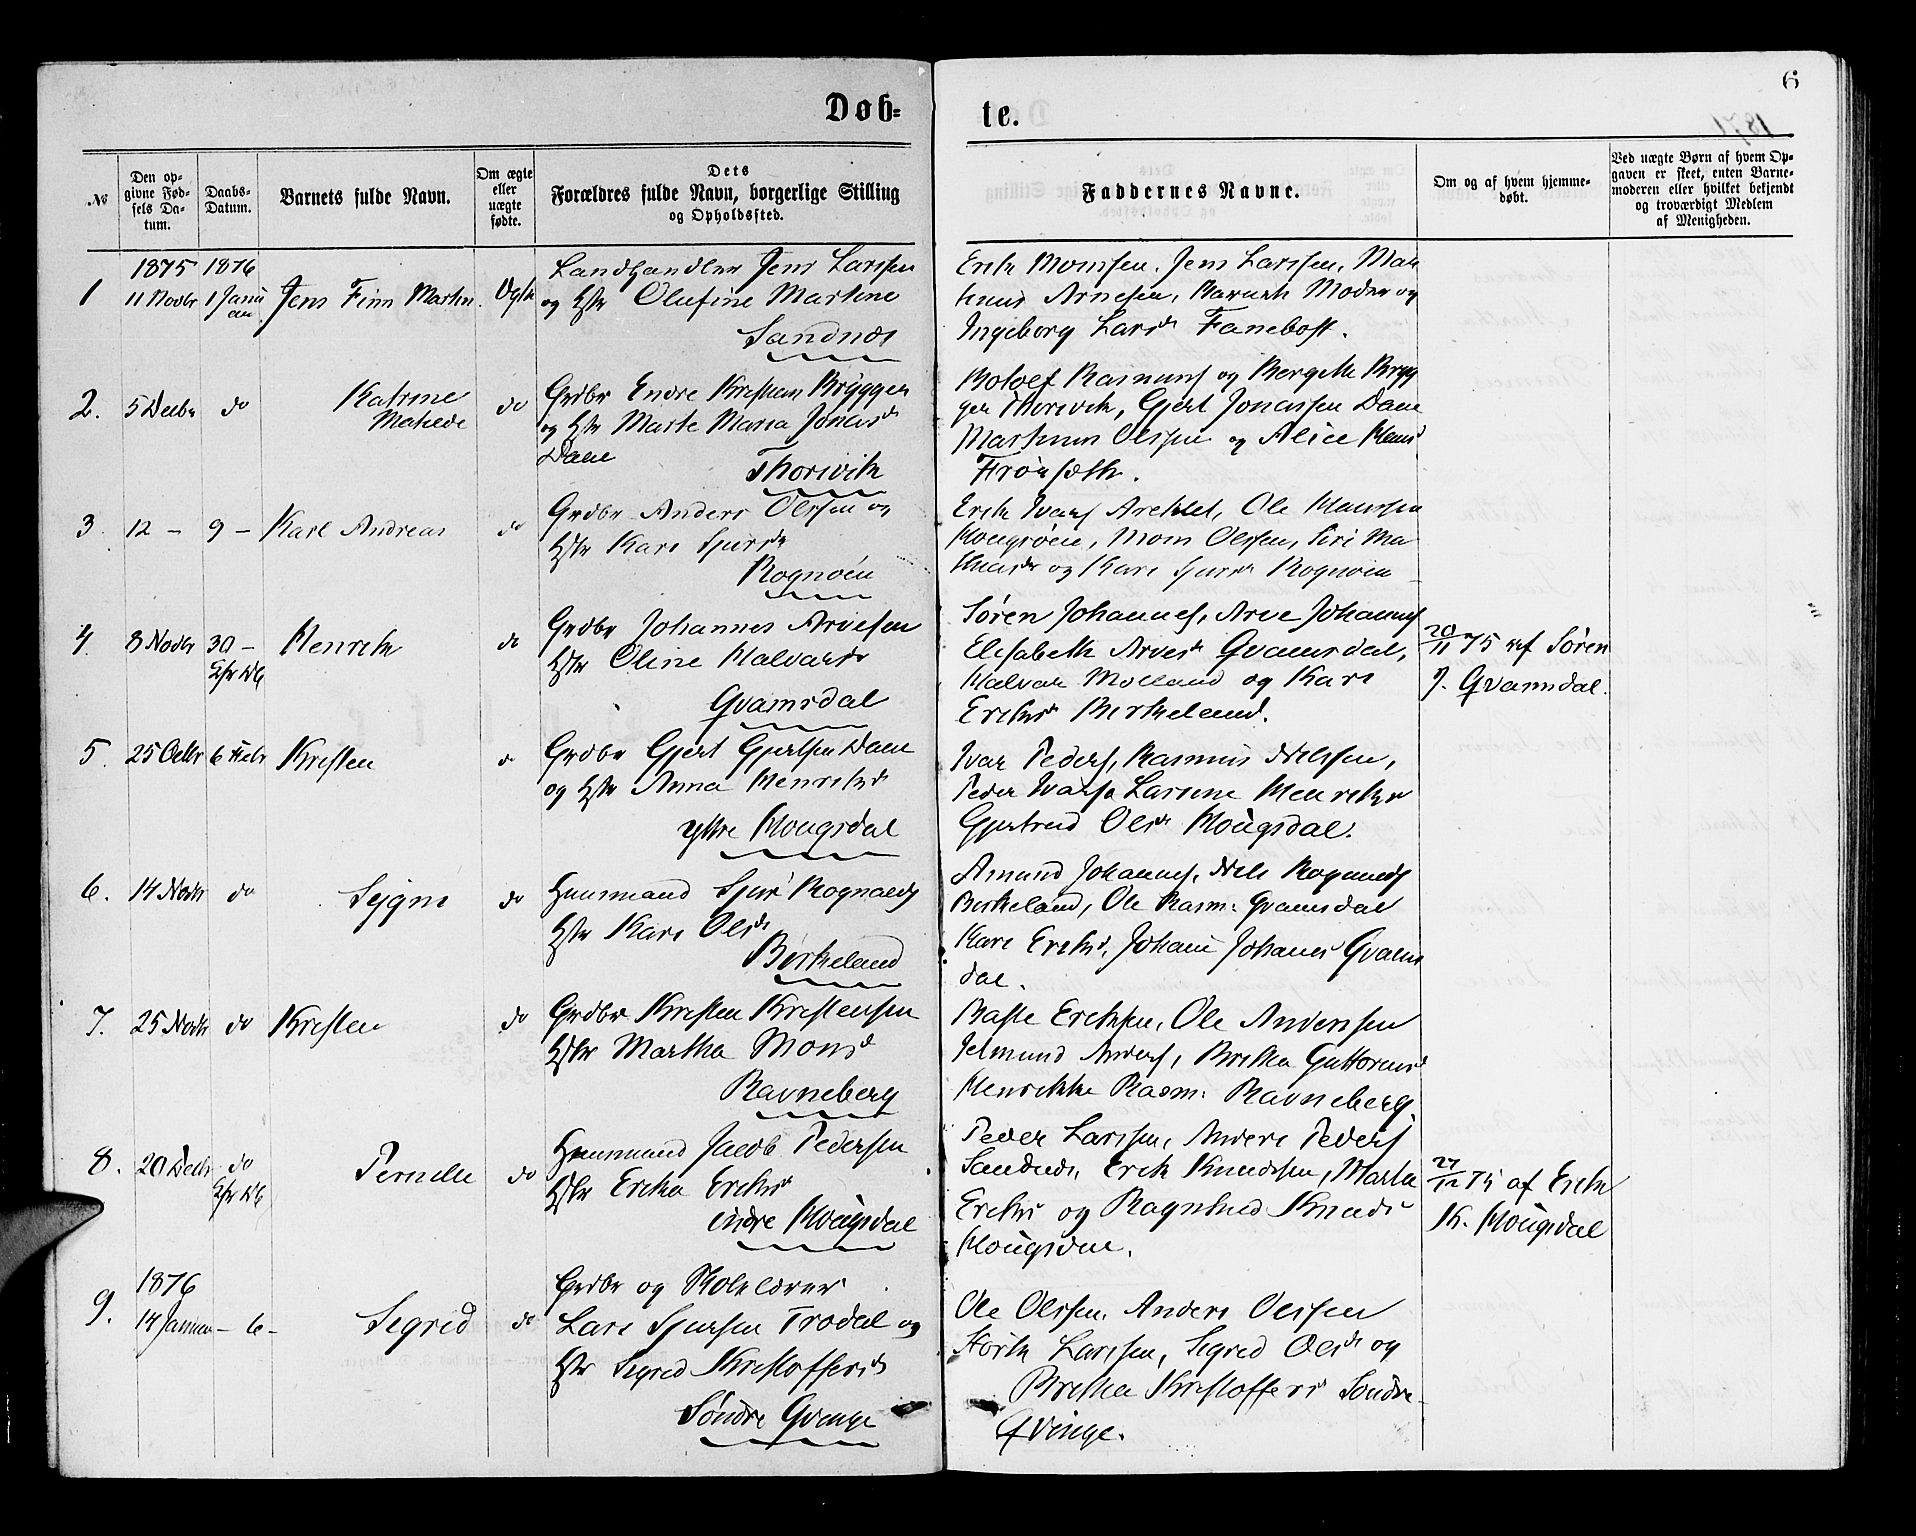 6
Døb-
te.
№
Den op-
givne Fød-
sels Da-
tum.
Daabs-
Datum.
Barnets fulde Navn.
Om ægte
eller
uægte
fødte.
Dets
Forældres fulde Navn, borgerlige Stilling
og Opholdssted.
Faddernes Navne.
Om og af hvem hjemme-
døbt.
Ved uægte Børn af hvem Op-
gaven er skeet, enten Barne-
moderen eller hvilket bekjendt
og troværdigt Medlem
af Menigheden.
1875 1876
1 11 Novbr 1 Janu
ar
Jens Finn Martin. Ægte
Landhandler Jens Larssen
og Hstr Olufine Martine
Sandnæs
Erik Monssen, Jens Larssen,
Arnesen, Moder og
Ingeborg Larsdr Fanebost.
2. 5 Decbr do Katrine
Matilde do
Grdbr Endre Kristians Brygger
og Hstr Marte Maria Jonasdr
Dale
Thorsvik
Botolf Rasmuss og Bergithe Bryg
ger Thorsvik, Gjert Jonassen Dale
Martinus Olssen og Alice Hansd
3. 12 - 9 - Karl Andreas do
Grdbr Anders Olssen og
Hstr Kari Sjursdr
Rognøen
Erik Ivars Ole Hanssen
Hougsøen, Mons Olssen, Siri Ma
og Kari Sjursdr Rognøen
4. 8 Novbr 30 - Henrik do
Grdbr Johannes Arvesen
Hstr Oline Halvarsdr
Qvamsdal
Søren Johanness, Arve Johanness
Elisabeth Arvesdr Qvamsdal,
Halvar Molland og Kari
Eriksdr Birkeland.
20/11 75 af Søren
J. Qvamsdal.
5. 25 Octbr 6 Febr Kristen do
Grdbr Gjert Gjertsen Dale
og Hstr Anna Henriksdr
ytre Hougsdal
Ivar Peders, Rasmus Nilssen,
Peder Ivars Larsine Henriksdr
Gjertrud Olsdr Hougsdal.
6. 14 Novbr do Sygni do
Huusmand Sjur Rognalds
Hstr Kari Olsdr
Birkeland
Amund Johanness, Nils Rognalds
Birkeland, Ole Rasm: Qvamsdal
Kari Eriksd, Johani Johanes Qvams
dal.
7. 25 Novbr do Kristen do
Grdbr Kristen Kristensen
Hstr Martha Monsd
Ravneberg
Baste Eriksen, Ole Anderssen
Anders, Britha Guttormsd
Henrikke Rasm: Ravneberg.
8. 20 Decbr do Pernille do
Huusmand Jacob Pedersen
Hstr Erika Eriksdr
indre Hougsdal
Peder Larssen, Anders Peders
Sandnæs, Erik Knudssen, Marta
Eriks og Ragnhild Knuds
Hougsdal.
27/12 75 af Erik
K. Hougsdal
1876
9. 14 Januar - 6 - Sigrid do
Grdbr og Skolelærer
Lars Sjursen Trodal og
Hstr Sigrid Kristoffersdr
Søndre Qvinge
Ole Olssen, Anders Olssen
Størk Larssen, Sigrid Olsdr og
Britha Kristoffers Søndre
Qvinge.